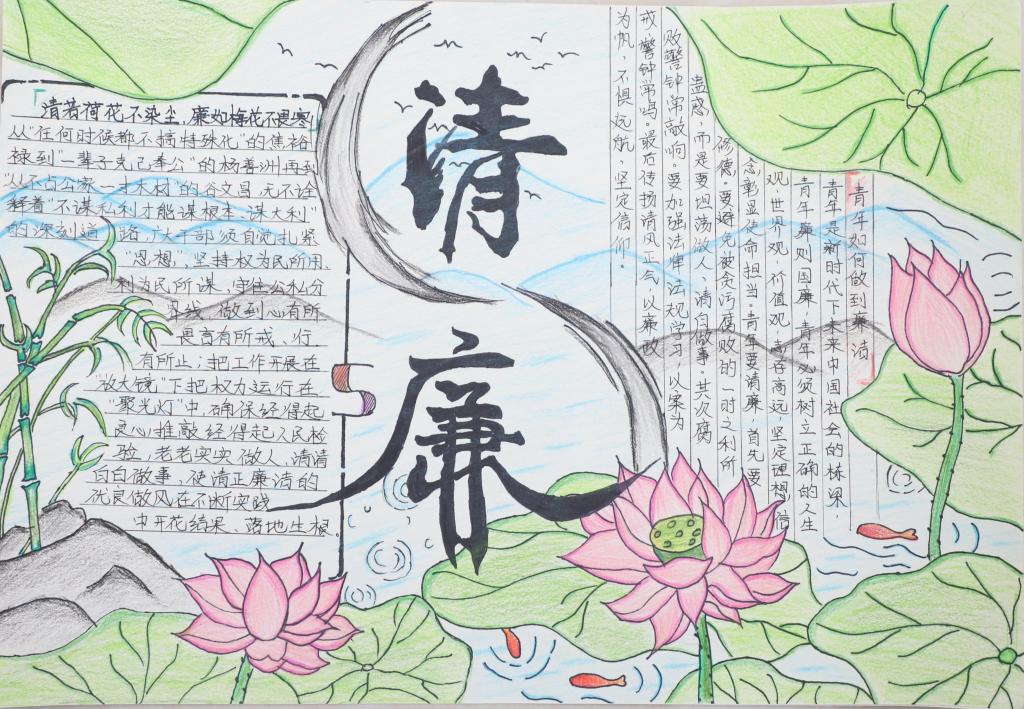 清廉
清若荷花不染尘，廉如梅花不畏寒
从“任何时候都不搞特殊化”的焦裕
禄到“一辈子克己奉公”的杨善洲再到
“从不占公家一寸木材”的谷文昌，无不诠
释着“不谋私利才能谋根本、谋大利”
的深刻道路，广大干部须自觉扎紧
“思想”，坚持权为民所用
利为民所谋，守住公私分
界线，做到心有所
畏言有所戒、行
有所止；把工作开展在
“放大镜”下把权力运行在
“聚光灯”中，确保经得起
良心推敲经得起人民检
验，老老实实做人，清清
白白做事，使清正廉洁的
优良做风在不断实践
中开花结果、落地生根。
青年如何做到廉洁
青年是新时代下来来中国社会的栋梁，
青年廉则国廉，青年必须树立正确的人生
观、世界观、价值观，志存高远，坚定理想信
念，彰显使命担当。青年要清廉，首先要
修德。要避免被贪污腐败的一时之利所
蛊惑，而是要坦荡做人，清白做事。其次腐
败警钟常敲响。要加强法律法规学习，以案为
戒，警钟常鸣。最后传扬清风正气，以廉政
为帆，不惧远航，坚定信仰。